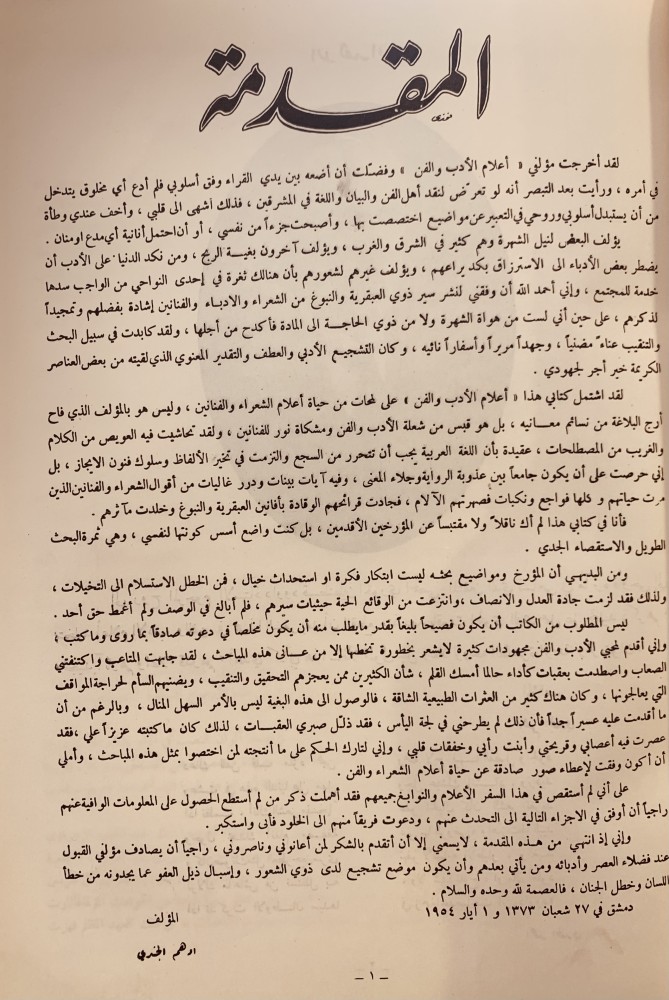 المقدمة
لقد أخرجت مؤلفي « أعلام الأدب والفن » وفضلت أن أضعه بين يدي القراء وفق أسلوبي فلم أدع أي مخلوق يتدخل
في أمره ، ورأيت بعد التبصر أنه لو تعرض لنقد أهل الفن والبيان واللغة في المشرقين ، فذلك اشهى الى قلبي ، وأخف عندي وطأة
من أن يستبدل أسلوبي وروحي في التعبير عن مواضيع اختصصت بها ، وأصبحت جزءاً من نفسي ، أو أن احتمل أنانية أي مدع او منان .
يؤلف البعض لنيل الشهرة وهم كثير في الشرق والغرب ، ويؤلف آخرون بغيـة الربح ، ومن نكد الدنيا على الأدب أن
يضطر بعض الأدباء الى الاسترزاق بكد يراعهم ، ويؤلف غيرهم لشعورهم بأن هنالك ثغرة في إحدى النواحي من الواجب سدها
خدمة للمجتمع ، وإني أحمد الله أن وفقني لنشر سير ذوي العبقرية والنبوغ من الشعراء والادباء والفنانين إشادة بفضلهم وتمجيداً
لذكرهم ، على حين أني لست من هواة الشهرة ولا من ذوي الحاجـة الى المادة فأكدح من أجلها ، ولقد كابدت في سبيل البحث
والتنقيب عناءً مضنياً ، وجهداً مريراً وأسفاراً نائيه ، وكان التشجيع الأدبي والعطف والتقدير المعنوي الذي لقيته من بعض العناصر
الكريمة خير أجر لجهودي .
لقد اشتمل كتابي هذا « أعلام الأدب والفن » على لمحات من حياة أعلام الشعراء والفنانين ، وليس هو بالمؤلف الذي فاح
أرج البلاغة من نسائم معـانيه ، بل هو قبس من شعلة الأدب والفن ومشكاة نور للفنانين ، ولقد تحاشيت فيه العويص من الكلام
والغريب من المصطلحات ، عقيدة بأن اللغة العربية يجب أن تتحرر من السجع والتزمت في تخير الألفاظ وسلوك فنون الايجاز ، بل
إني حرصت على أن يكون جامعاً بين عذوبة الرواية وجلاء المعنى ، وفيه آيات بينات ودرر غاليات من أقوال الشعراء والفنانين الذين
مرت حياتهم و كلها فواجع ونكبات فصهرتهم الآلام ، فجادت قرائحهم الوقادة بأفانين العبقرية والنبوغ وخلدت مآثرهم .
فأنا في كتابي هذا لم أك ناقلاً ولا مقتبساً عن المؤرخين الأقدمين ، بل كنت واضع أسس كونتها لنفسي ، وهي ثمرة البحث
الطويل والاستقصاء الجدي .
ومن البديهي أن المؤرخ ومواضيـع بحثـه ليست ابتكار فكرة او استحداث خيال ، فمن الخطل الاستسلام الى التخيلات ،
ولذلك فقد لزمت جادة العدل والانصاف ، وانتزعت من الوقائع الحية حيثيات سيرهم ، فلم أبالغ في الوصف ولم أغمط حق أحد .
ليس المطلوب من الكاتب أن يكون فصيحاً بليغاً بقدر مايطلب منه أن يكون مخلصاً في دعوته صادقاً بما روى وما كتب ،
وإني أقدم لمحبي الأدب والفن مجهودات كثيرة لايشعر بخطورة تخطيها إلا من عـانى هذه المباحث ، لقد جابهت المتاعب واكتنفتني
الصعاب واصطدمت بعقبات كأداء حالما أمسك القلم ، شأن الكثيرين ممن يعجزهم التحقيق والتنقيب ، ويضنيهم السأم لحراجة المواقف
التي يعالجونها ، وكان هناك كثير من العثرات الطبيعية الشاقة ، فالوصول الى هذه البغية ليس بالأمر السهل المنال ، وبالرغم من أن
ما أقدمت عليه عسيراً جداً فأن ذلك لم يطرحني في لجة اليأس ، فقد ذلـل صبري العقبـات ، لذلك كان ماكتبته عزيزاً علي ، فقد
عصرت فيه أعصابي وقريحتي وأبنت رأيي وخفقات قلبي ، وإني لتارك الحكم على ما أنتجته لمن اختصوا بمثل هذه المباحث ، وأملي
أن أكون وفقت لإعطاء صور صادقة عن حياة أعلام الشعراء والفن .
على أني لم أستقص في هذا السفر الأعلام والنوابغ جميعهم فقد أهملت ذكر من لم أستطع الحصول على المعلومات الوافية عنهم
راجياً أن أوفق في الاجزاء التالية الى التحدث عنهم ، ودعوت فريقاً منهم الى الخلود فأبى واستكبر .
وإني إذ انتهي من هـذه المقدمة ، لايسعني إلا أن أتقدم بالشكر لمن أعانوني وناصروني ، راجياً أن يصادف مؤلفي القبول
عند فضلاء العصر وأدبائه ومن يأتي بعدهم وأن يكون موضع تشجيع لدى ذوي الشعور ، وإسبال ذيل العفو عما يجدونه من خطأ
اللسان وخطل الجنان ، فالعصمة لله وحده والسلام .
دمشق في ٢٧ شعبان ١٣٧٣ و ١ أيار ١٩٥٤
المؤلف
ادهم الجندي
– ١ –